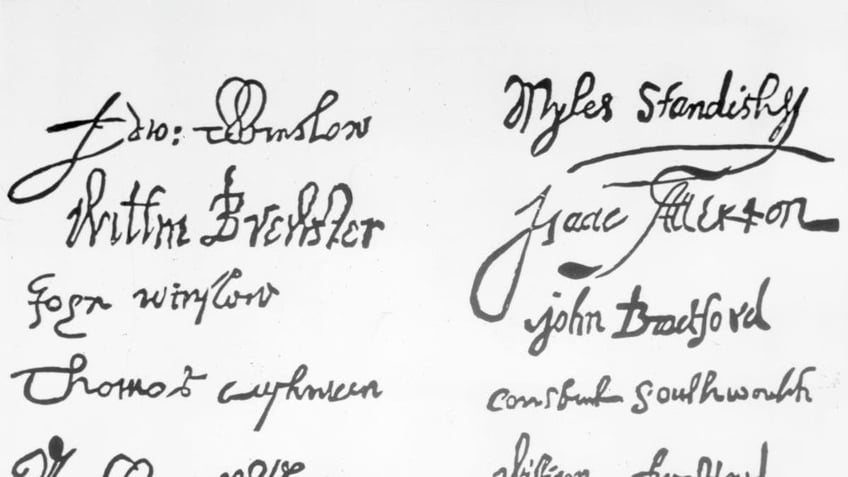 Edw: Winslow
Myles Standish
Willm Brewster
Isaac Allerton
John winslow
john Bradford
Thomas cushman
constant Southworth